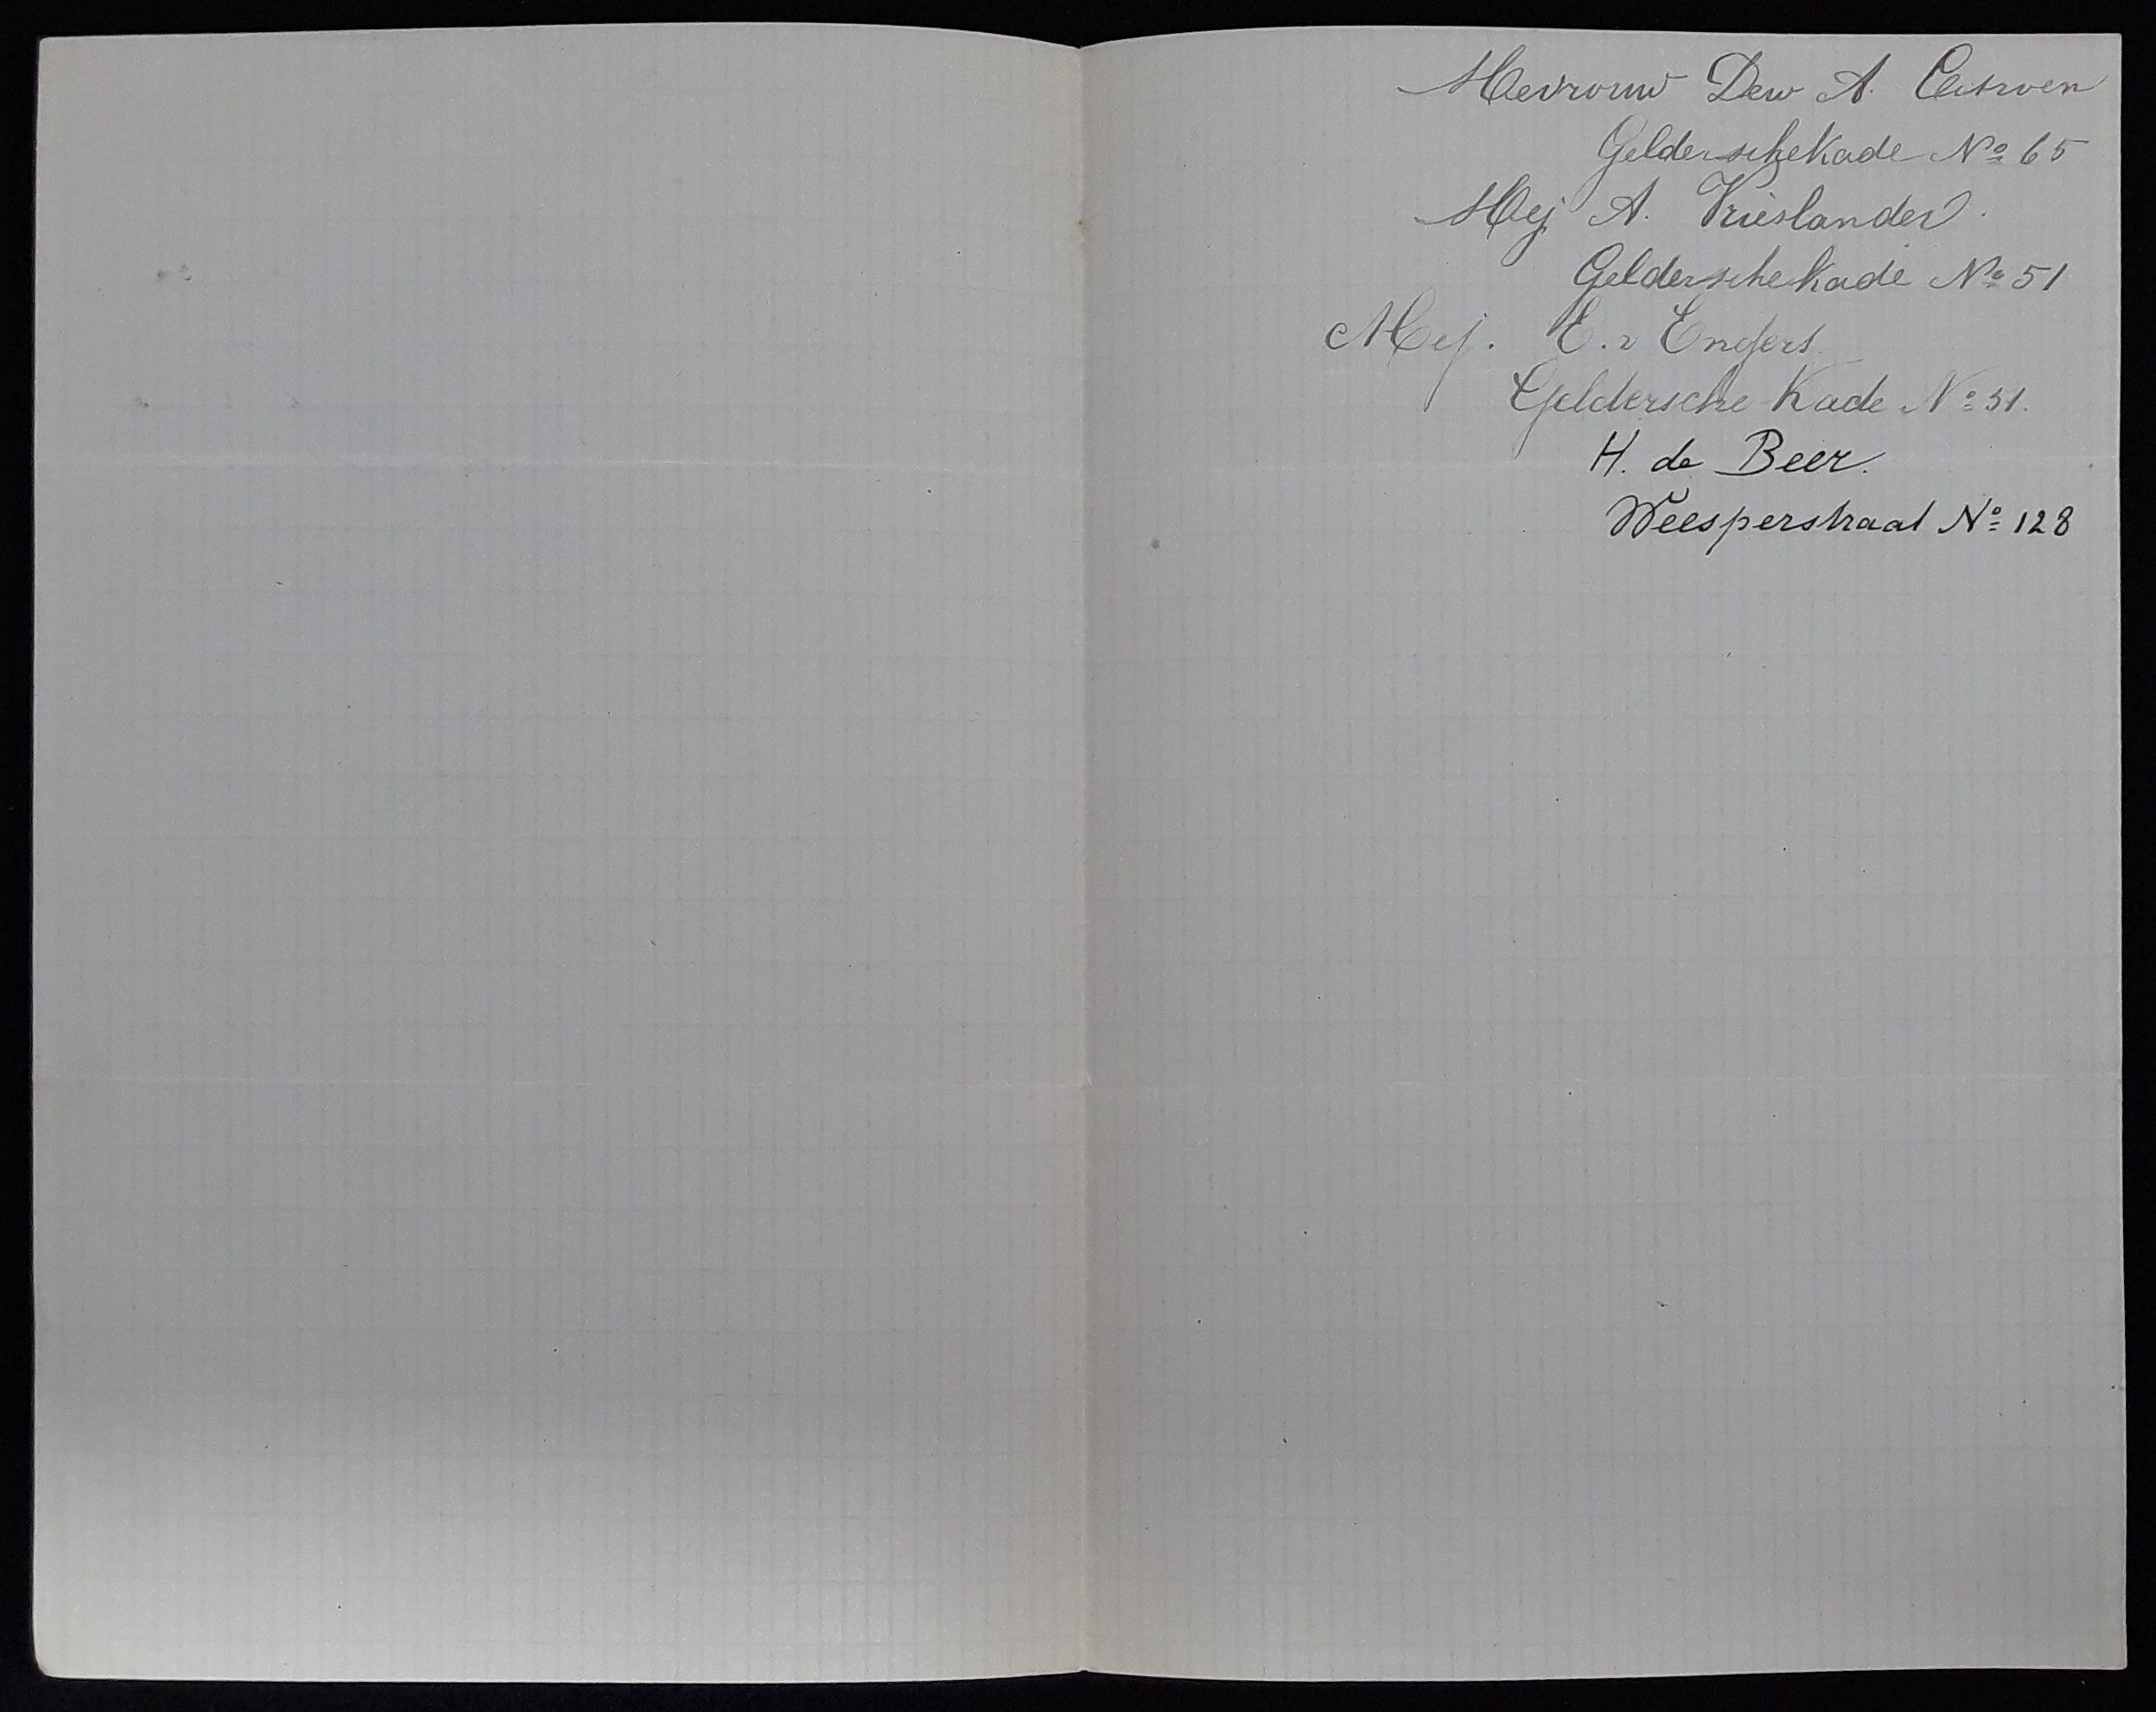 Mevrouw Dew A. Citroen
Gelderschekade No 65
Mej A. Vrieslander.
Gelderschekade No 51
Mej. E. v Engers.
Geldersche Kade No 51.
H. de Beer.
Weesperstraat No 128